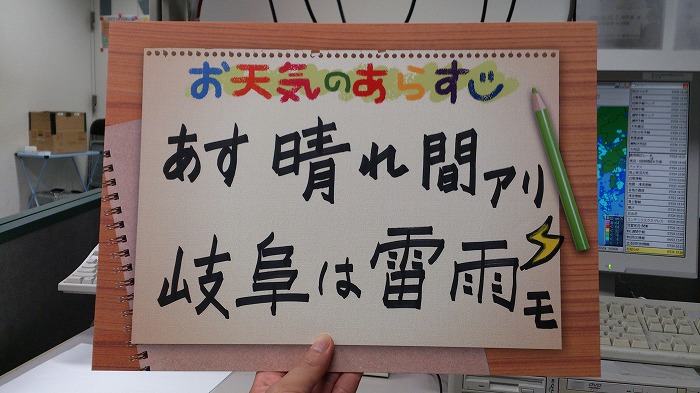 お天気のあらすじ
あす晴れ間アリ
岐阜は雷雨モ